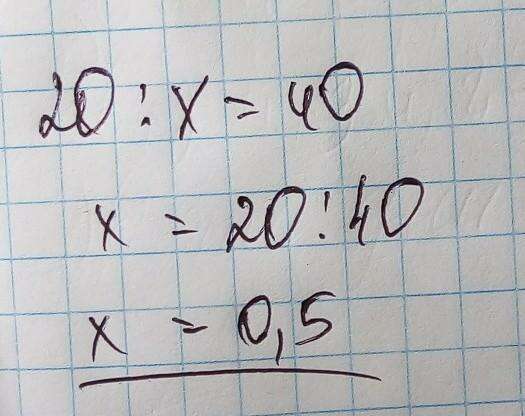 20 : x = 40
x = 20 : 40
x = 0,5